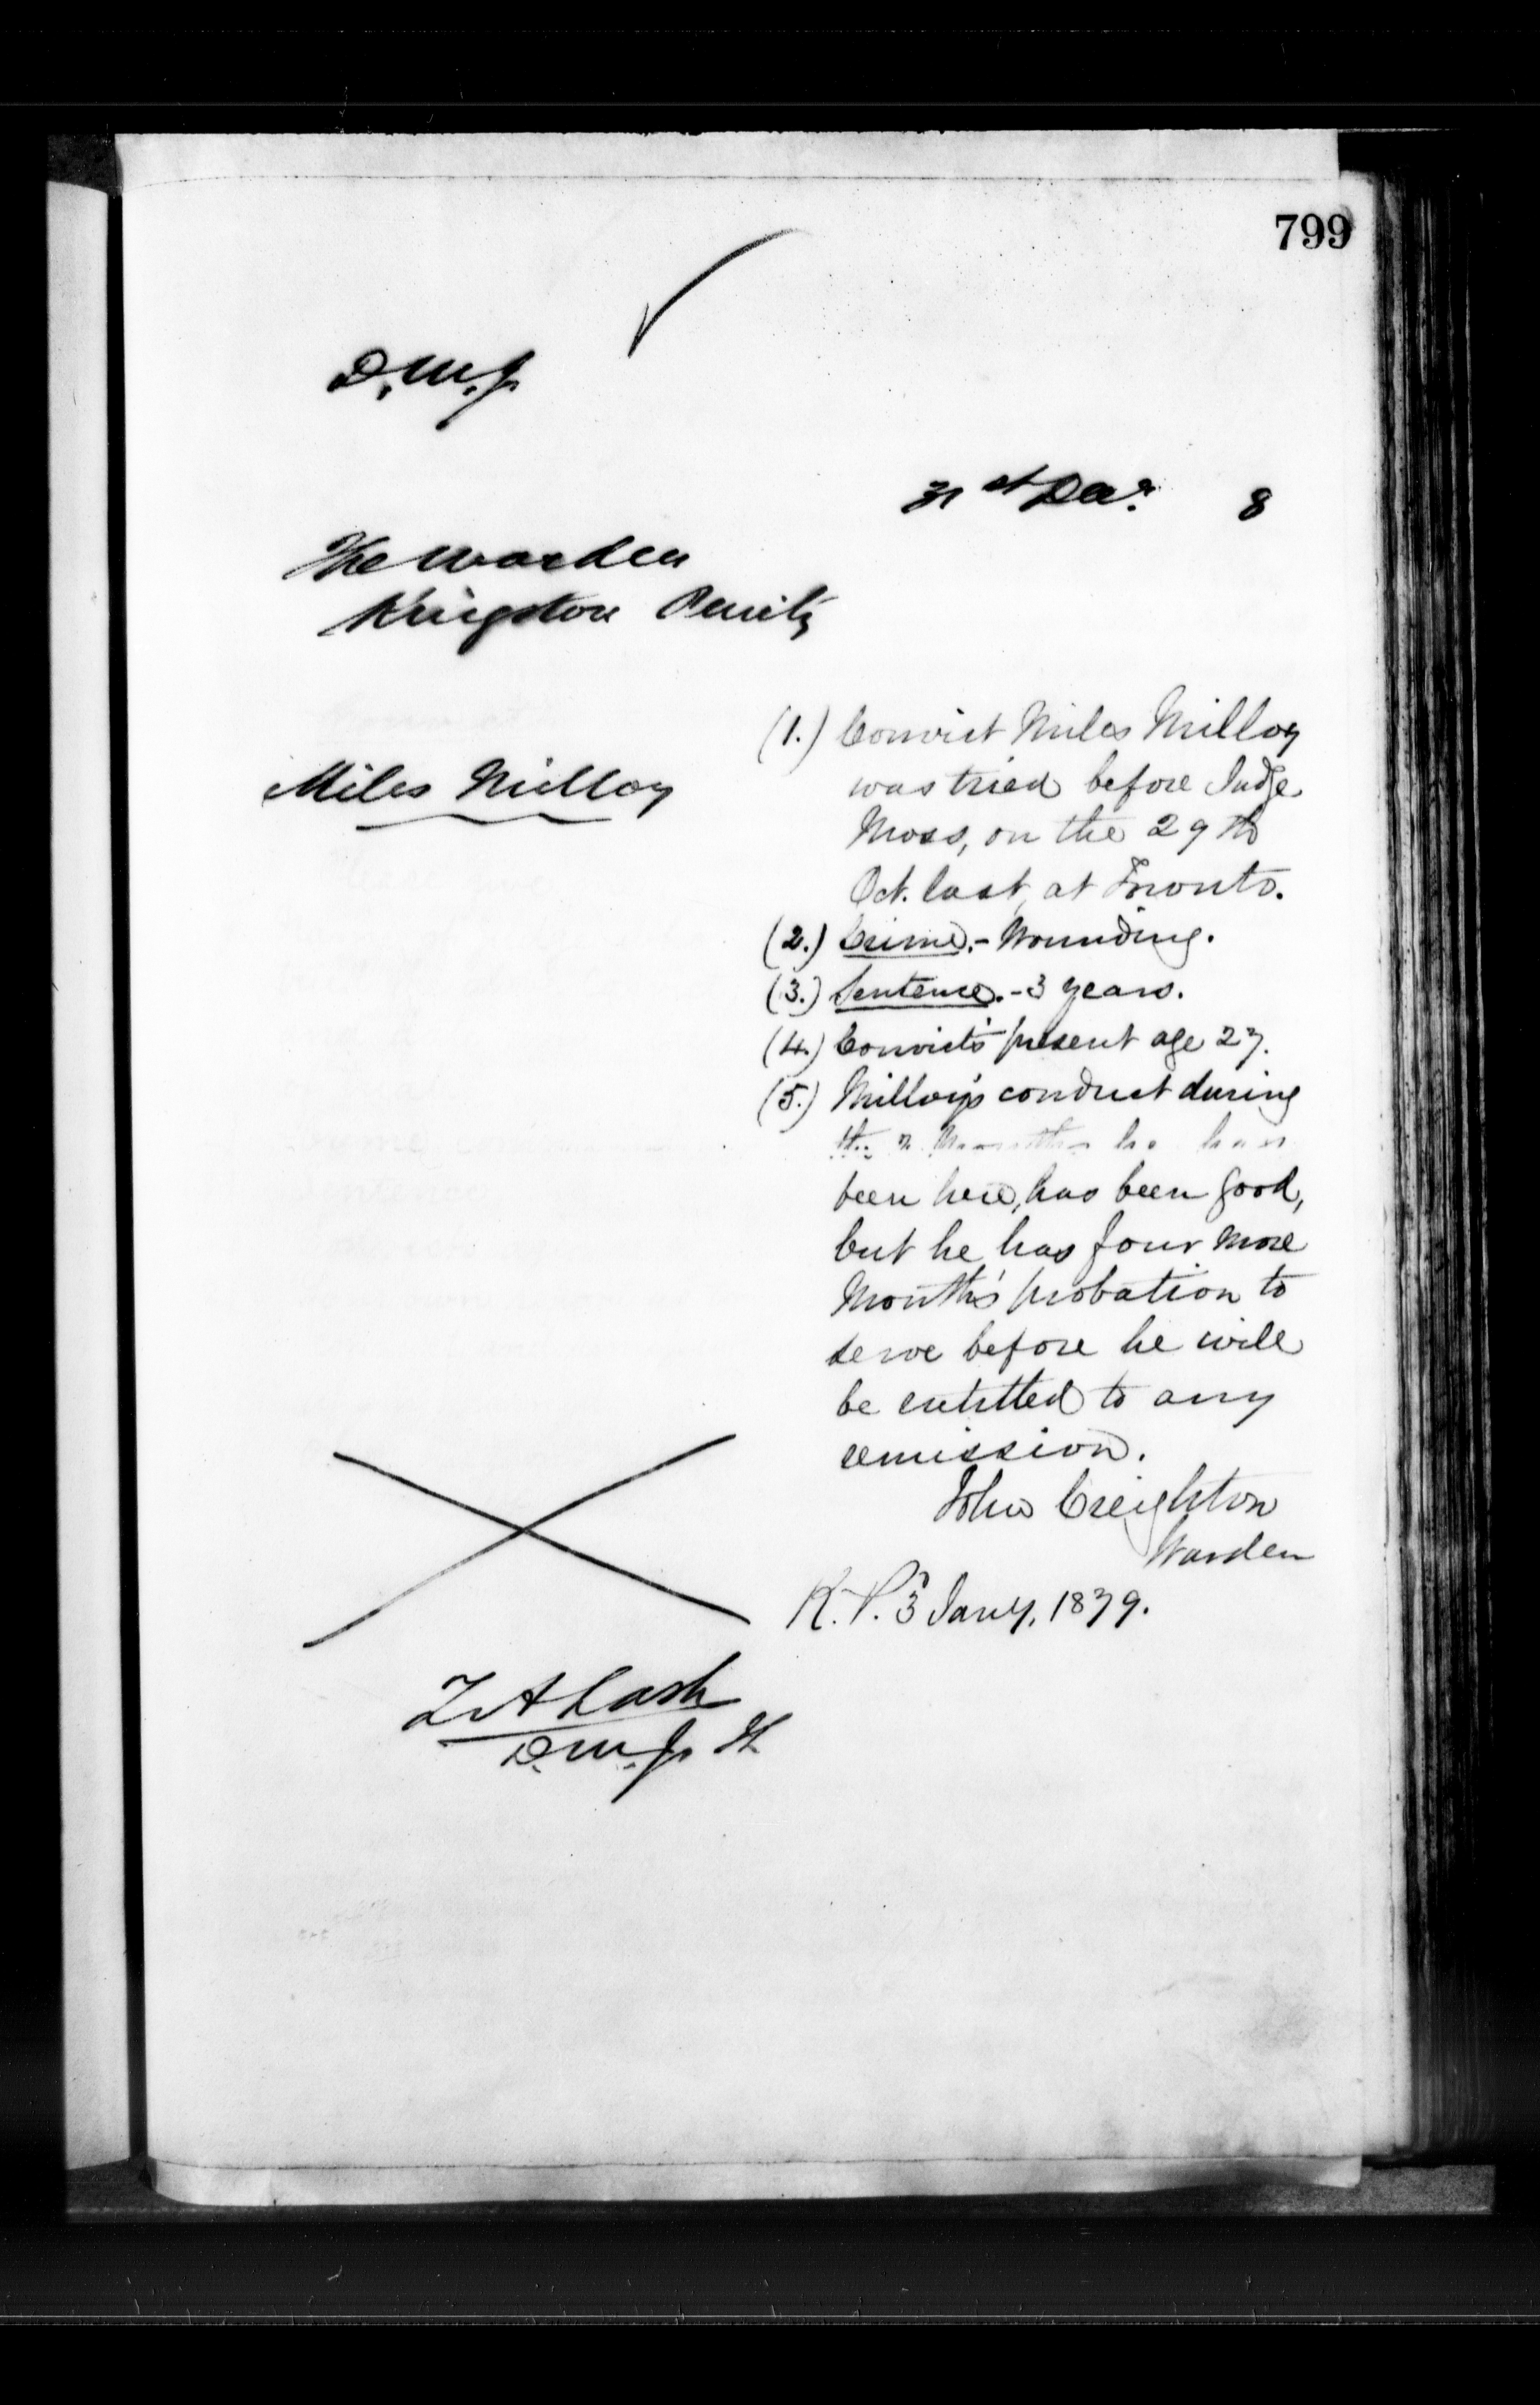 799
D.M.J.
31st Decr. 8
The Warden
Kingston Penity
Miles Milloy
(1.) Convict Miles Milloy
was tried before Judge
Moss, on the 29th
Oct. last, at Toronto.
(2.) Crime.- Wounding.
(3.) Sentence.-3 years.
(4.) Convict's present age 27.
(5.) Milloy's conduct during
the 2 Months he has
been here, has been good,
but he has four more
Month's probation to
serve before he will
be entitled to any
remission.
John Creighton
Warden
K.P. 3 Jany. 1879.
Z A Lash
D.M.J.